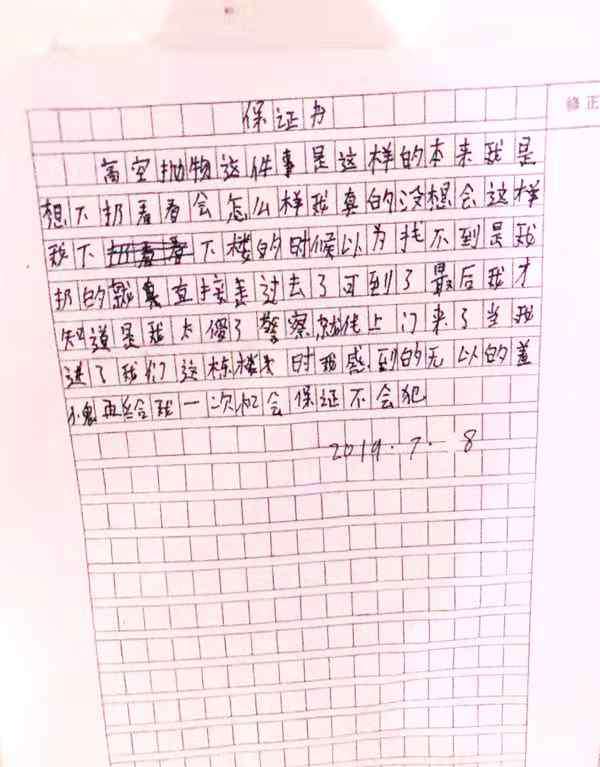 修正
保证书
高空抛物这件事是这样的本来我是
想下扔看看会怎么样我真的没想会这样
我下 下楼的时候以为找不到是我
扔的就 直接盖过去了可到了最后我才
知道是我太傻了警察就找上门来了当我
进了我们这栋楼 时我感到的无以的羞
愧再给我一次机会保证不会犯
2019.7. 8